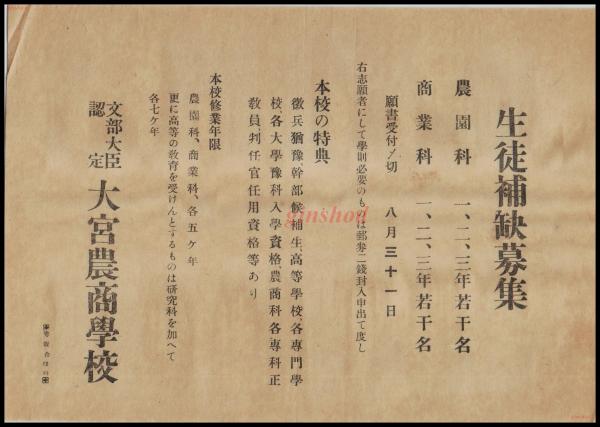 生徒補缺募集
農園科 一、二、三年若干名
商業科 一、二、三年若干名
願書受付〆切 八月三十一日
右志願者にして學則必要のものは郵券二錢封入申出て度し
本校の特典
徴兵猶豫、幹部候補生、高等學校、各專門學
校、各大學豫科入學資格、農商科各專科正
教員、判任官任用資格等あり
本校修業年限
農園科、商業科、各五ヶ年
更に高等の教育を受けんとするものは研究科を加へて
各七ヶ年
文部大臣
認定
大宮農商學校
ginshod